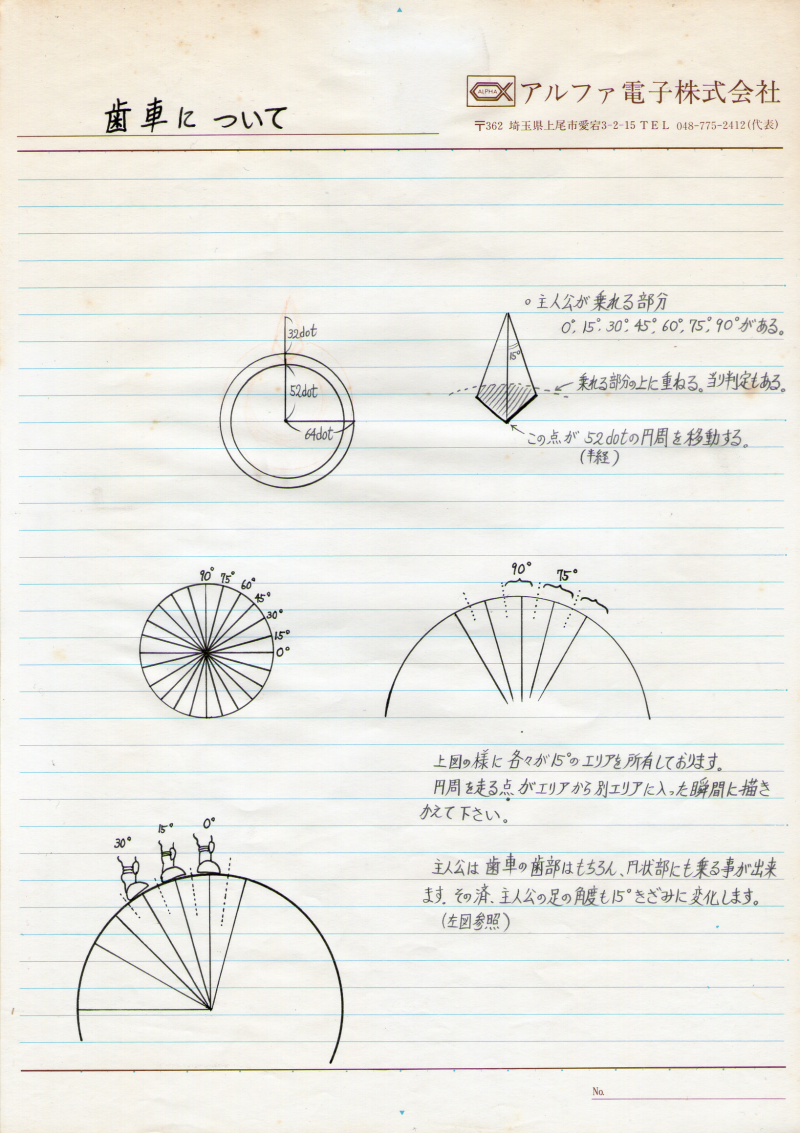 歯車について
ALPHA
アルファ電子株式会社
〒362 埼玉県上尾市愛宕3-2-15 TEL 048-775-2412(代表)
32dot
52dot
64dot
○主人公が乗れる部分
0°, 15°, 30°, 45°, 60°, 75°, 90°がある。
15°
乗れる部分の上に重ねる。当り判定もある。
この点が 52dotの円周を移動する。
(半経)
90° 75° 60° 45° 30° 15° 0°
90° 75°
上図の様に 各々が15°のエリアを所有しております。
円周を走る点がエリアから別エリアに入った瞬間に描き
かえて下さい。
30° 15° 0°
主人公は 歯車の歯部はもちろん、円状部にも乗る事が出来
ます。その済、主人公の足の角度も15°きざみに変化します。
(左図参照)
No.